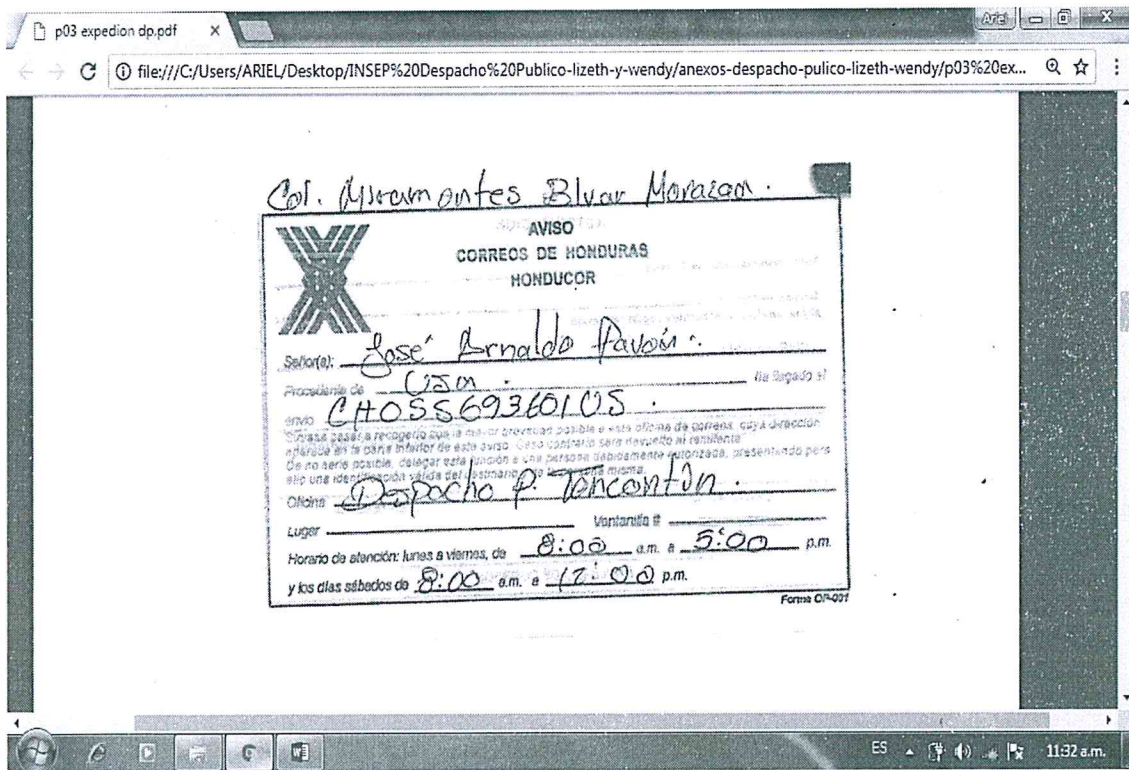 p03 expedion dp.pdf
Ariel
file:///C:/Users/ARIEL/Desktop/INSEP%20Despacho%20Publico-lizeth-y-wendy/anexos-despacho-pulico-lizeth-wendy/p03%20ex...
Col. Miramontes Blvar Morazan.
AVISO
CORREOS DE HONDURAS
HONDUCOR
Señor(a): José Arnaldo Pavón.
Procedente de USA. ha llegado el
envío CH055693601US.
Sírvase pasar a recogerlo con la mayor brevedad posible a esta oficina de correos, cuya dirección
aparece en la parte inferior de este aviso. Caso contrario será devuelto al remitente.
De no serle posible, delegar esta función a una persona debidamente autorizada, presentando para
ello una identificación válida del destinatario misma.
Oficina Despacho P. Toncontín.
Lugar Ventanilla #
Horario de atención: lunes a viernes, de 8:00 a.m. a 5:00 p.m.
y los días sábados de 8:00 a.m. a 12:00 p.m.
Forma OP-001
ES 11:32 a.m.